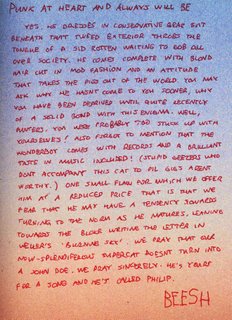 PUNK AT HEART AND ALWAYS WILL BE
YES, HE DRESSES IN CONSERVATIVE GEAR BUT
BENEATH THAT TUFED EXTERIOR THROBS THE
TONGUE OF A SID ROTTEN WAITING TO GOB ALL
OVER SOCIETY. HE COMES COMPLETE WITH BLOND
HAIR CUT IN MOD FASHION AND AN ATTITUDE
THAT TAKES THE PISS OUT OF THE WORLD. YOU MAY
ASK WHY HE HASN'T COME TO YOU SOONER, WHY
YOU HAVE BEEN DEPRIVED UNTIL QUITE RECENTLY
OF A SOLID BOND WITH THIS ENIGMA? WELL,
PUNTERS, YOU WERE PROBABLY TOO STUCK UP WITH
YOURSELVES! ALSO FORGOT TO MENTION THAT THE
WONDERBOY COMES WITH RECORDS AND A BRILLIANT
TASTE IN MUSIC INCLUDED! (STUPID GEEZERS WHO
DON'T ACCOMPANY THIS CAT TO PIL GIGS AREN'T
WORTHY.) ONE SMALL FLAW FOR WHICH WE OFFER
HIM AT A REDUCED PRICE THAT IS THAT WE
FEAR THAT HE MAY HAVE A TENDENCY TOWARDS
TURNING TO THE NORM AS HE MATURES, LEANING
TOWARDS THE BLOKE WRITING THE LETTER IN
WELLER'S 'BURNING SKY'. WE PRAY THAT OUR
NOW-SPLENDIFEROUS SUPERCAT DOESN'T TURN INTO
A JOHN DOE. WE PRAY SINCERELY. HE'S YOURS
FOR A SONG AND HE'S CALLED PHILIP.
BEESH